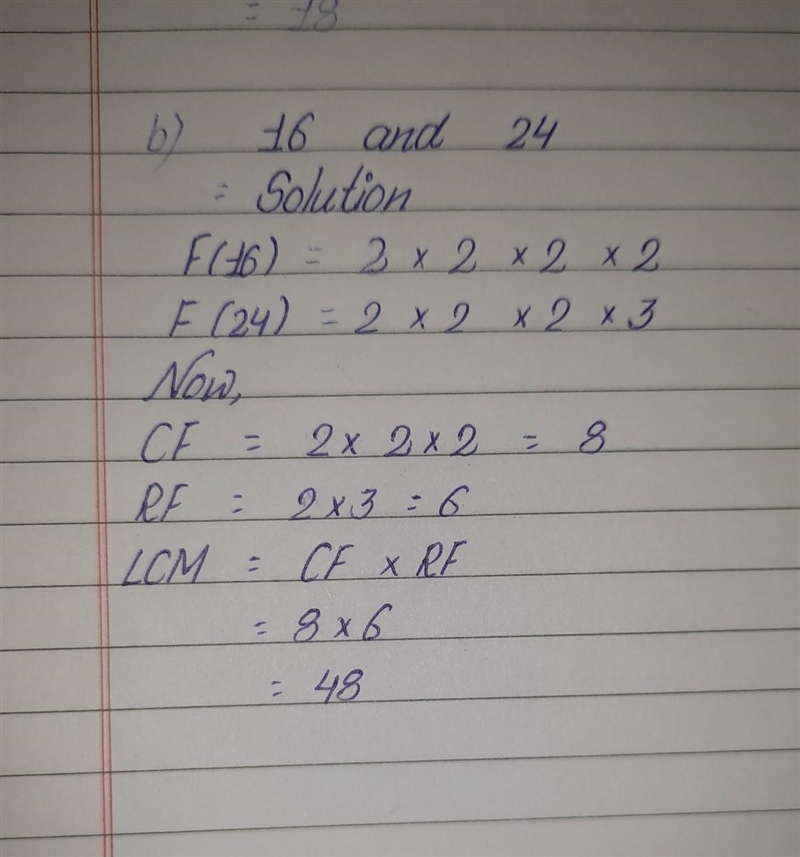 = 18
b) 16 and 24
= Solution
F(16) = 2 × 2 × 2 × 2
F(24) = 2 × 2 × 2 × 3
Now,
CF = 2 × 2 × 2 = 8
RF = 2 × 3 = 6
LCM = CF × RF
= 8 × 6
= 48